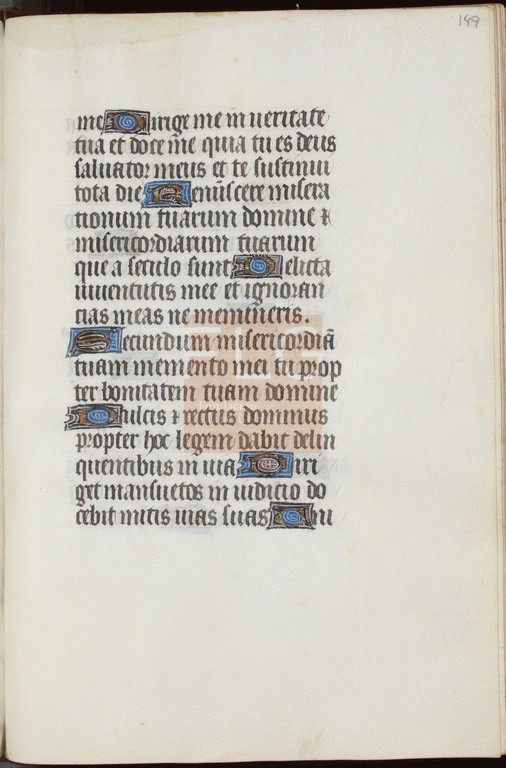 149
me Dirige me in ueritate
tua et doce me quia tu es deus
saluator meus et te sustinui
tota die Reminiscere misera
tionum tuarum domine ⁊
misericordiarum tuarum
que a seculo sunt Delicta
iuuentutis mee et ignoran
cias meas ne memineris.
Secundum misericordiā
tuam memento mei tu prop
ter bonitatem tuam domine
Dulcis ⁊ rectus dominus
propter hoc legem dabit delin
quentibus in uia Diri
get mansuetos in iudicio do
cebit mitis uias suas Uni